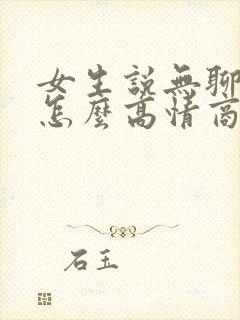 女生說無聊
怎麼高情商
石玉